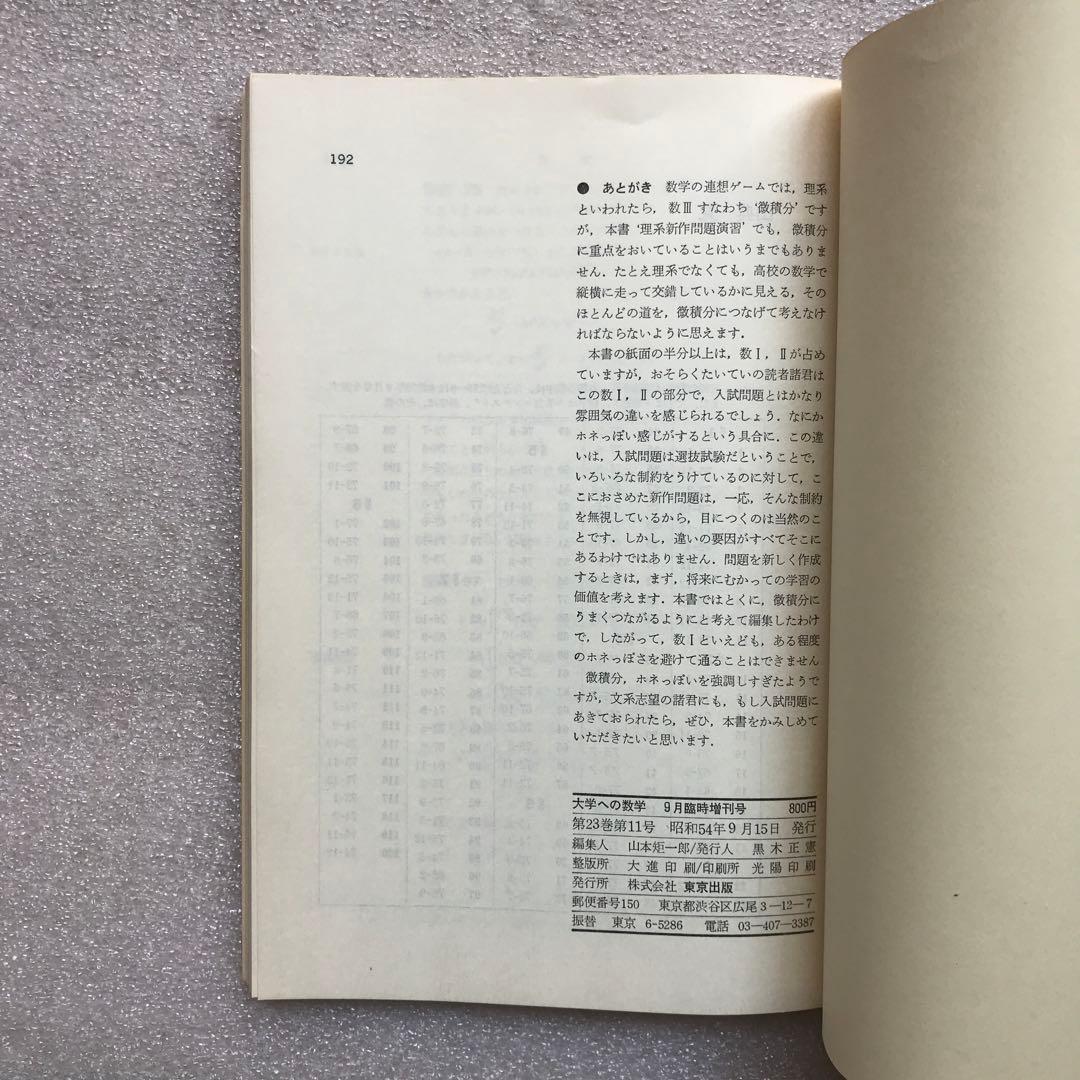 192
● あとがき 数学の連想ゲームでは，理系
といわれたら，数Ⅲ すなわち ‘微積分’ です
が，本書 ‘理系新作問題演習’ でも，微積分
に重点をおいていることはいうまでもありま
せん．たとえ理系でなくても，高校の数学で
縦横に走って交錯しているかに見える，その
ほとんどの道を，微積分につなげて考えなけ
ればならないように思えます．
本書の紙面の半分以上は，数Ⅰ，Ⅱが占め
ていますが，おそらくたいていの読者諸君は
この数Ⅰ，Ⅱの部分で，入試問題とはかなり
雰囲気の違いを感じられるでしょう．なにか
ホネっぽい感じがするという具合に．この違
いは，入試問題は選抜試験だということで，
いろいろな制約をうけているのに対して，こ
こにおさめた新作問題は，一応，そんな制約
を無視しているから，目につくのは当然のこ
とです．しかし，違いの要因がすべてそこに
あるわけではありません．問題を新しく作成
するときは，まず，将来にむかっての学習の
価値を考えます．本書ではとくに，微積分に
うまくつながるようにと考えて編集したわけ
で，したがって，数Ⅰといえども，ある程度
のホネっぽさを避けて通ることはできません
微積分，ホネっぽいを強調しすぎたようで
すが，文系志望の諸君にも，もし入試問題に
あきておられたら，ぜひ，本書をかみしめて
いただきたいと思います．
大学への数学 9月臨時増刊号 800円
第23巻第11号 昭和54年9月15日 発行
編集人 山本矩一郎/発行人 黒木正憲
整版所 大進印刷/印刷所 光陽印刷
発行所 株式会社 東京出版
郵便番号150 東京都渋谷区広尾3―12―7
振替 東京 6-5286 電話 03―407―3387